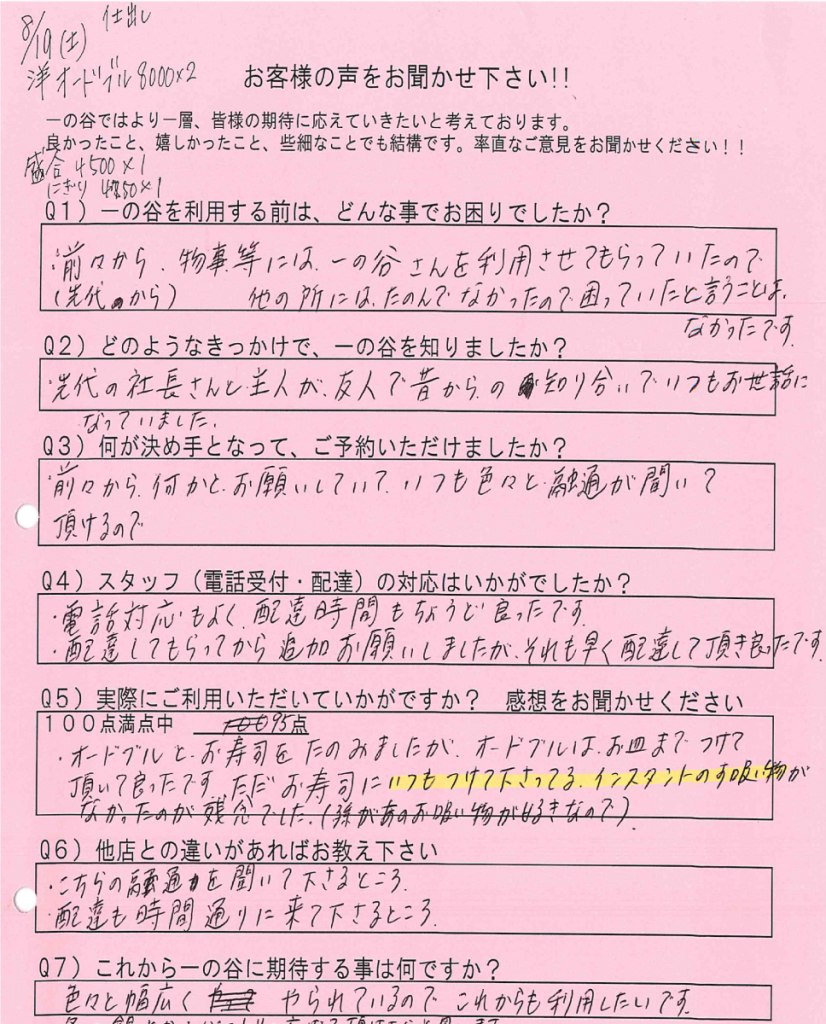 8/19(土) 仕出し
洋オードブル8000×2
お客様の声をお聞かせ下さい!!
一の谷ではより一層、皆様の期待に応えていきたいと考えております。
良かったこと、嬉しかったこと、些細なことでも結構です。率直なご意見をお聞かせください!!
盛合4500×1
にぎり
Q1)一の谷を利用する前は、どんな事でお困りでしたか?
・前々から、物事等には、一の谷さんを利用させてもらっていたので
(先代のから) 他の所には、たのんでなかったので困っていたと言うことは、
なかったです。
Q2)どのようなきっかけで、一の谷を知りましたか?
・先代の社長さんと主人が、友人で昔からの知り合いでいつもお世話に
なっていました。
Q3)何が決め手となって、ご予約いただけましたか?
・前々から、何かとお願いしていて、いつも色々と融通が聞いて
頂けるので
Q4)スタッフ(電話受付・配達)の対応はいかがでしたか?
・電話対応もよく、配達時間もちょうど良ったです。
・配達してもらってから追加お願いしましたが、それも早く配達して頂き良ったです。
Q5)実際にご利用いただいていかがですか? 感想をお聞かせください
100点満点中 95点
・オードブルとお寿司をたのみましたが、オードブルは、お皿までつけて
頂いて良ったです。ただお寿司にいつもつけて下さってる、インスタントのお吸い物が
なかったのが残念でした。(孫があのお吸い物が好きなので)。
Q6)他店との違いがあればお教え下さい
・こちらの融通を聞いて下さるところ。
・配達も時間通りに来て下さるところ。
Q7)これから一の谷に期待する事は何ですか?
色々と幅広く やられているので これからも利用したいです。